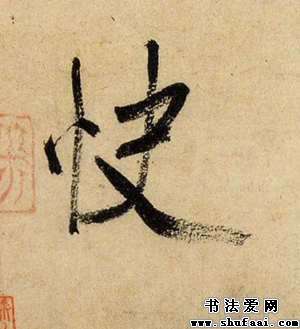 快
书法爱网
www.shufaai.com